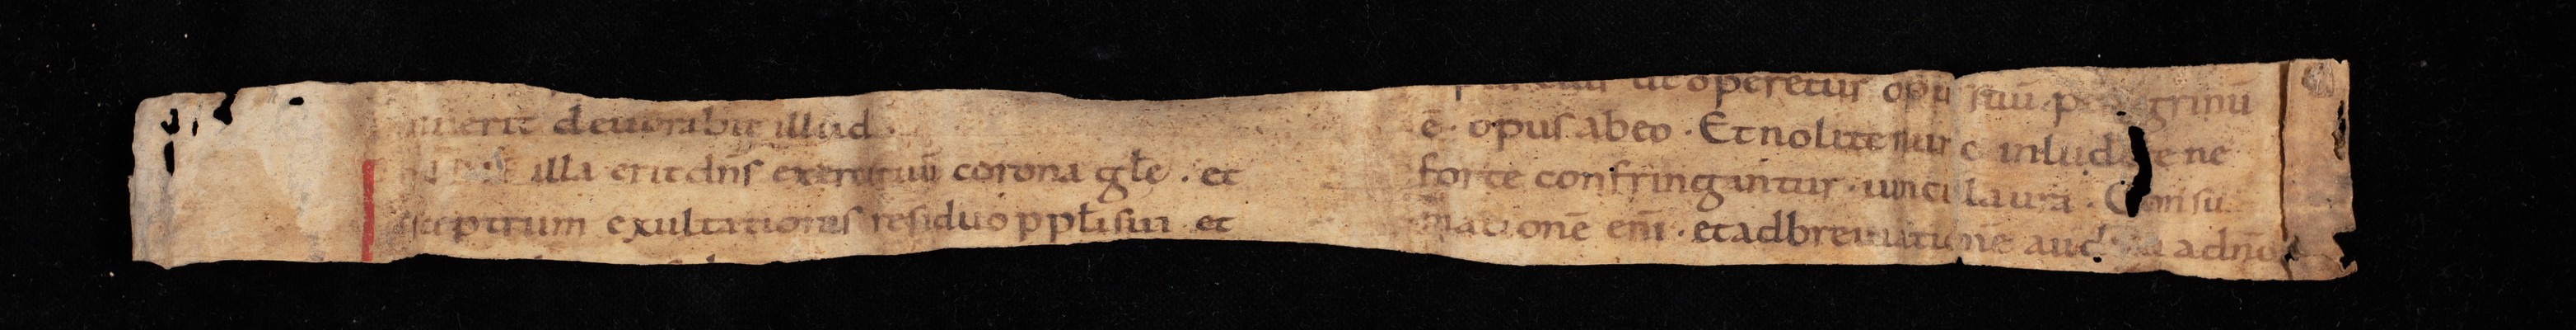 uerit deuorabit illud.
illa erit dn̄s exercituū corona gl̄ę . et
sceptrum exultationis residuo ppl̄i sui et
ut operetur opus suū. peregrinū
ē. opus ab eo . Et nolite nunc inludere ne
forte confringantur . uincula ura . Consu
mationē enī . et adbreuiationē audiui a dn̄o